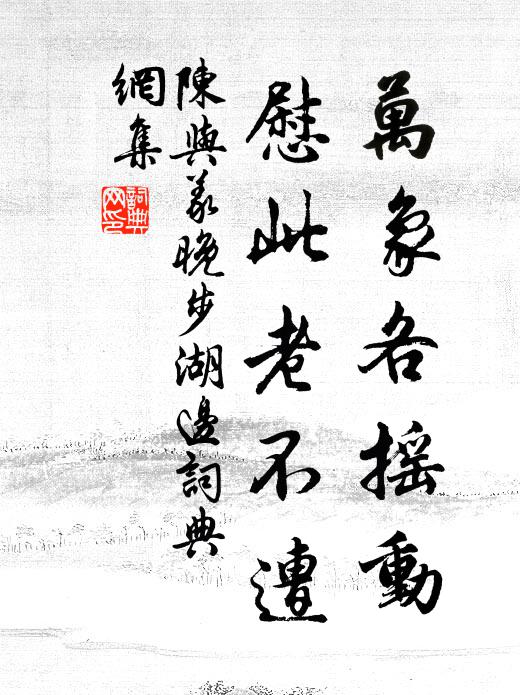 萬象各摇動
慰此老不遭
陳與義晚步湖邊詞典
網集
詞典
网印